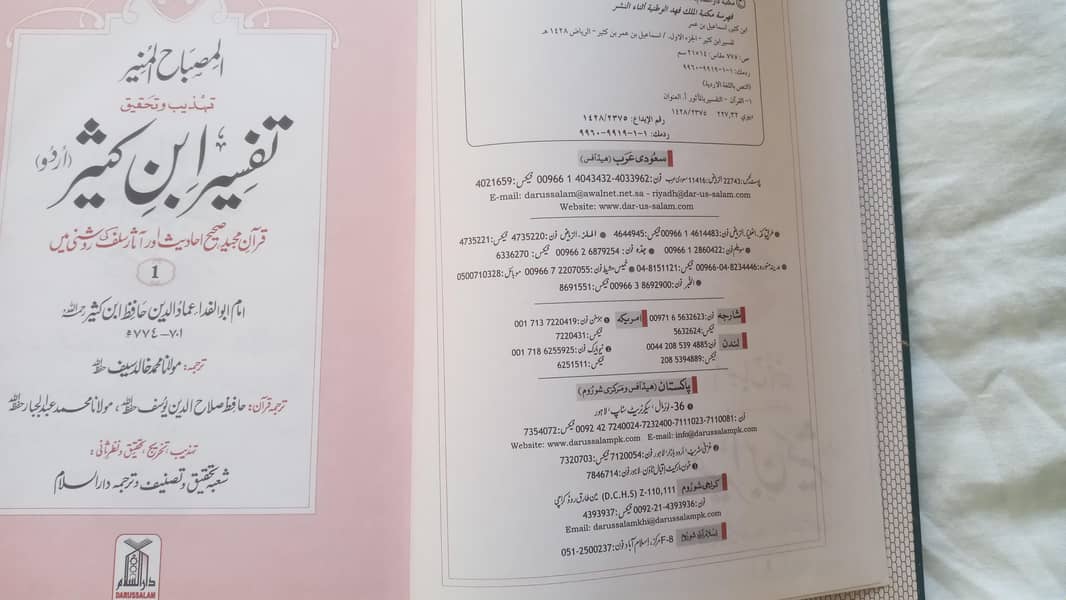 المصباح المنیر
تہذیب وتحقیق
تفسیر ابن کثیر (اُردُو)
قرآن مجید صحیح احادیث اور آثار سلف کی روشنی میں
1
امام ابوالفداء عمادُالدین حافظ ابن کثیر رحمہ اللہ
۷۰۱-۷۷٤ھ
ترجمہ: مولانا محمد خالد سیف حفظہ اللہ
ترجمہ قرآن: حافظ صلاح الدین یوسف حفظہ اللہ، مولانا محمد عبدالجبار حفظہ اللہ
تہذیب، تخریج، تحقیق و نظرثانی:
شعبہ تحقیق و تصنیف و ترجمہ دارالسلام
دارالسلام
DARUSSALAM
فهرسة مكتبة الملك فهد الوطنية أثناء النشر
ابن كثير، اسماعيل بن عمر
تفسير ابن كثير - الجزء الاول. / اسماعيل بن عمر بن كثير - الرياض ١٤٢٨ هـ
ص: ٧٧٥ مقاس: ١٤×٢١ سم
ردمك: ١-١-٩٩١٩-٩٩٦٠
(النص باللغة الاردية)
١- القرآن - التفسير بالمأثور أ. العنوان
ديوي ٢٢٧,٣٢ ١٤٢٨/٢٣٧٥
رقم الإيداع: ١٤٢٨/٢٣٧٥
ردمك: ١-١-٩٩١٩-٩٩٦٠
سعودی عرب (ھیڈآفس)
پوسٹ بکس: 22743 الریاض: 11416 سعودی عرب فون: 00966 1 4043432-4033962 فیکس: 4021659
E-mail: darussalam@awalnet.net.sa - riyadh@dar-us-salam.com
Website: www.dar-us-salam.com
الریاض فون: 00966 1 4614483 فیکس: 4644945 ● الملز۔ الریاض فون: 4735220 فیکس: 4735221
● فون: 00966 1 2860422 ● جدّہ فون: 00966 2 6879254 فیکس: 6336270
● مدینہ منورہ: 00966-04-8234446 فیکس: 04-8151121 ● خمیس مشیط فون: 00966 7 2207055 موبائل: 0500710328
● الخبر فون: 00966 3 8692900 فیکس: 8691551
شارجه فون: 00971 6 5632623 فیکس: 5632624
لندن فون: 0044 208 539 4885 فیکس: 208 5394889
امریکہ ❶ ہوسٹن فون: 001 713 7220419 فیکس: 7220431
❷ نیویارک فون: 001 718 6255925 فیکس: 6251511
پاکستان (ھیڈآفس ومرکزی شوروم)
❶ 36- لوئرمال، سیکرٹریٹ سٹاپ، لاہور
فون: 0092 42 7240024-7232400-7111023-7110081 فیکس: 7354072
Website: www.darussalampk.com E-mail: info@darussalampk.com
❷ غزنی سٹریٹ اُردو بازار لاہور فون: 7120054 فیکس: 7320703
❸ مون مارکیٹ اقبال ٹاؤن، لاہور فون: 7846714
کراچی شوروم Z-110,111 (D.C.H.S) مین طارق روڈ کراچی
فون: 0092-21-4393936 فیکس: 4393937
Email: darussalamkhi@darussalampk.com
اسلام آباد شوروم F-8 مرکز، اسلام آباد فون: 051-2500237